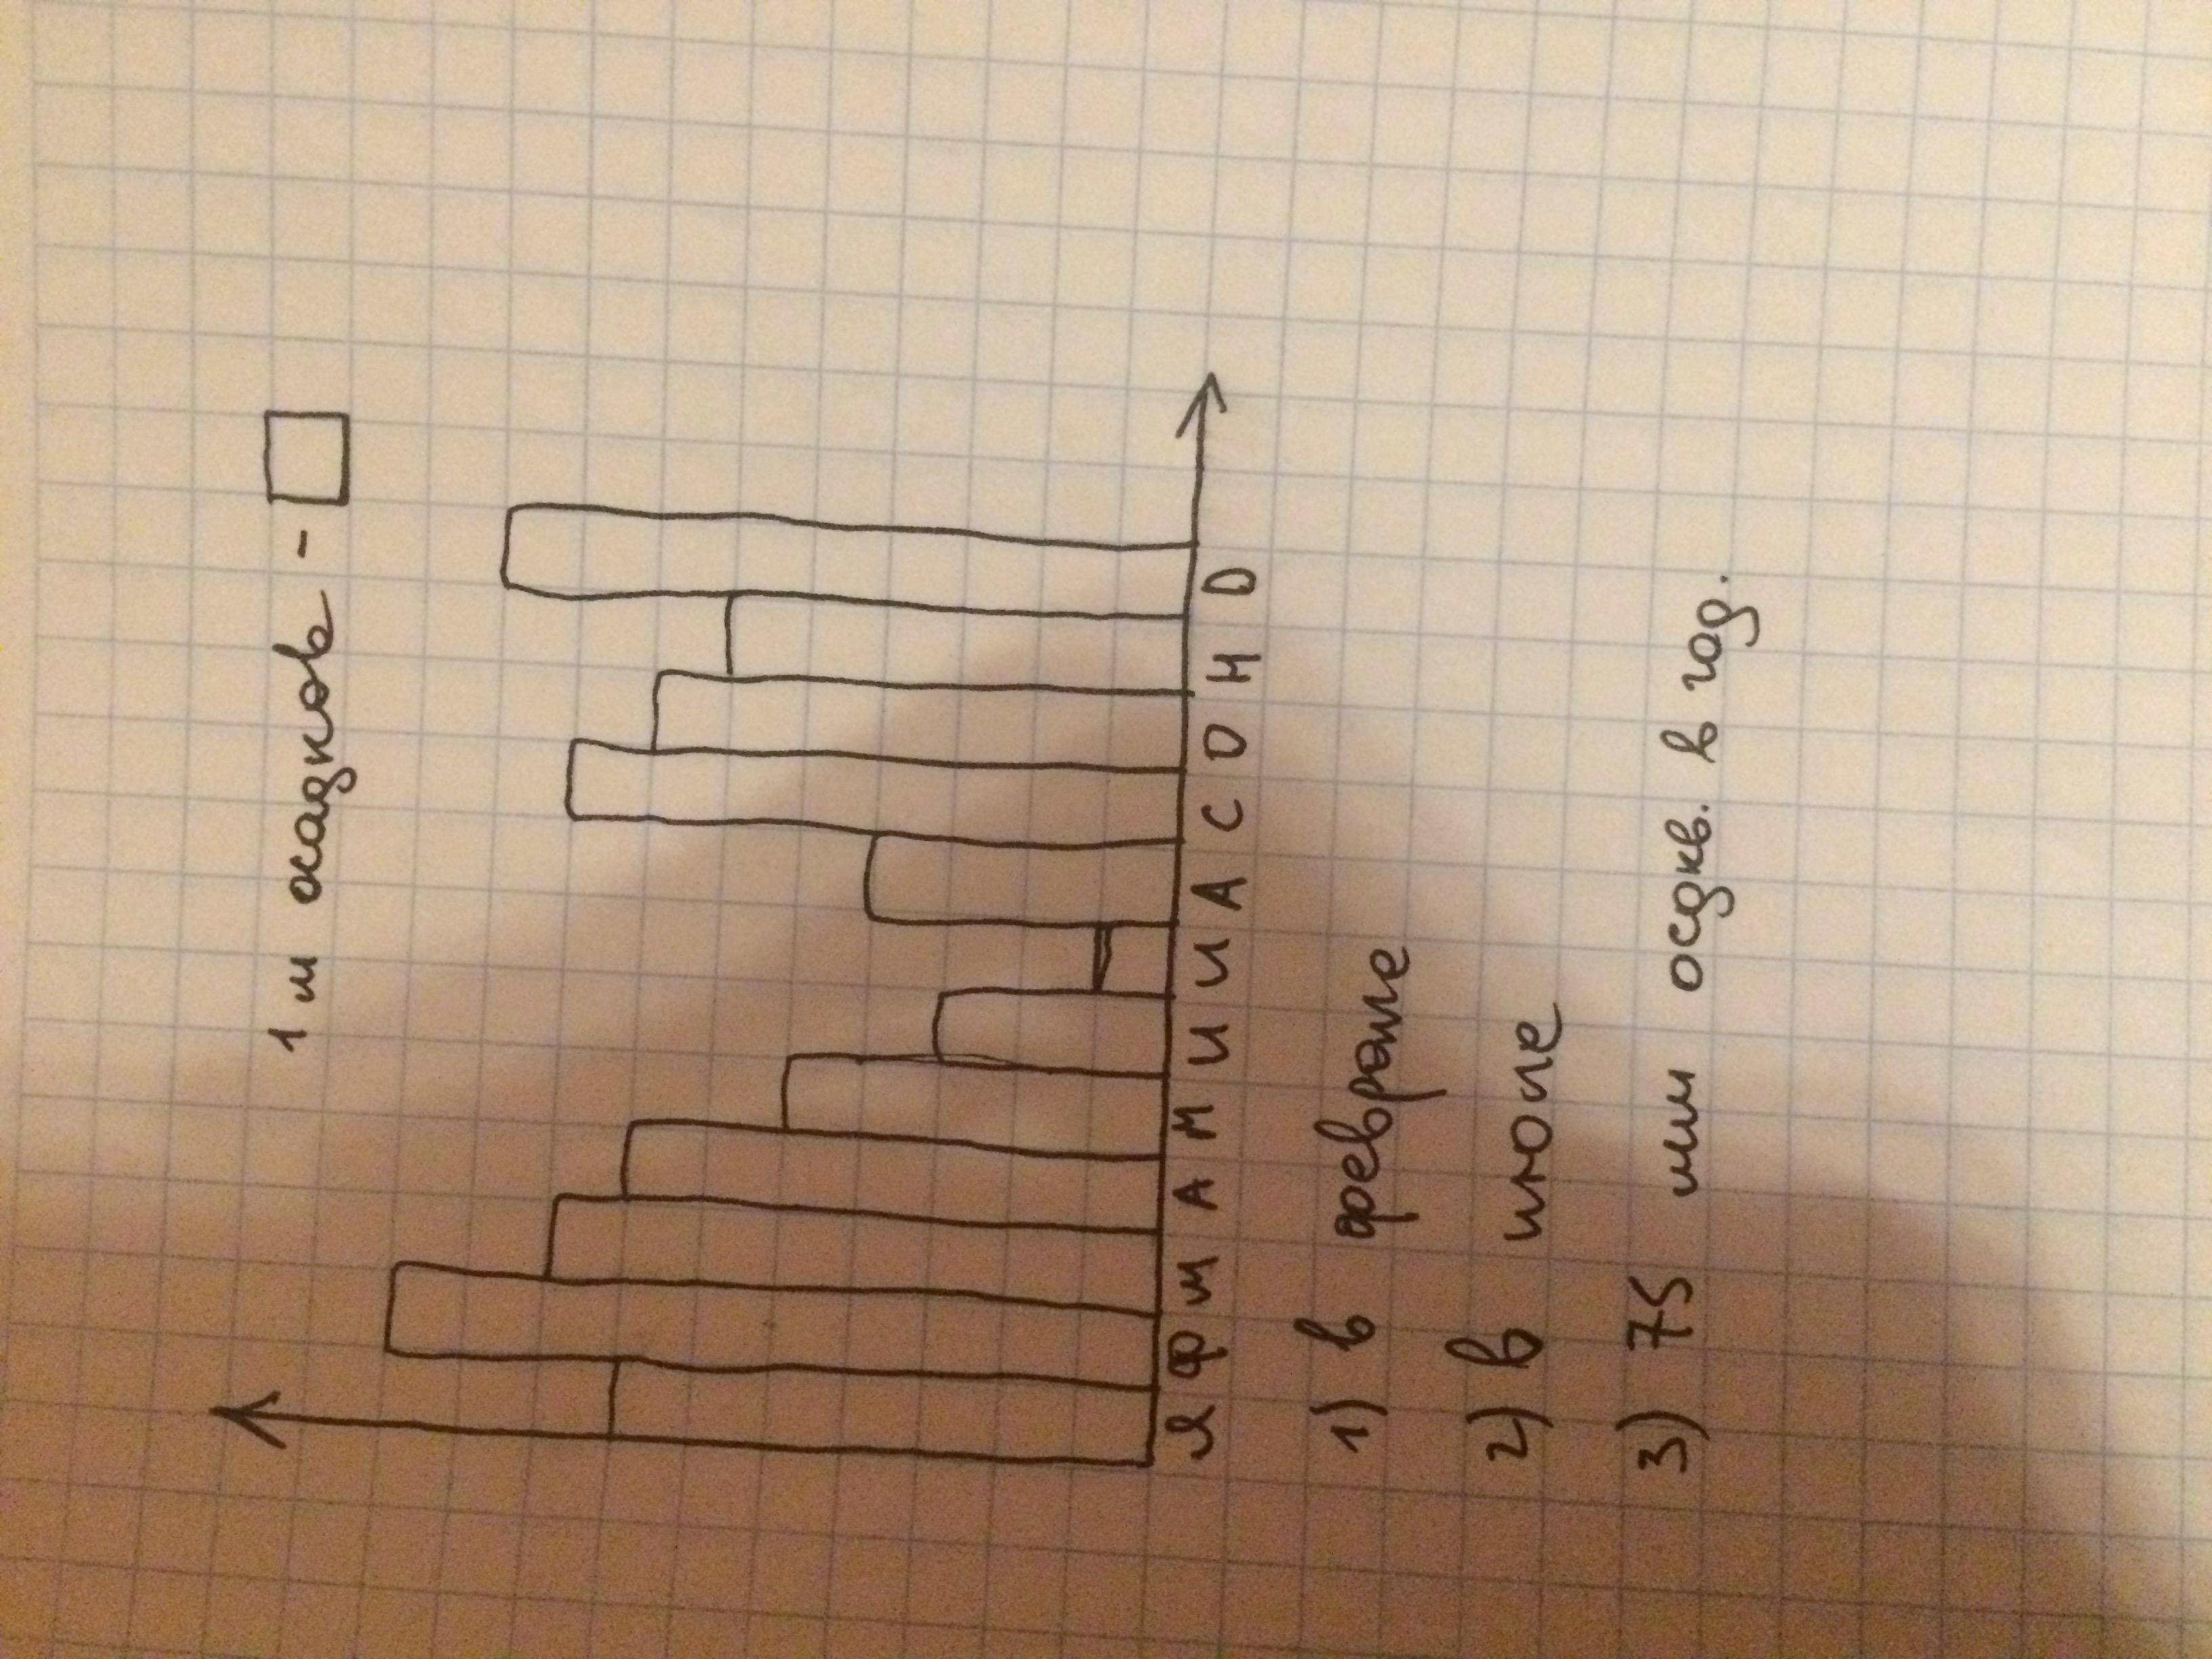 1 м осадков -
Я Ф М А М И И А С О Н D
1) в феврале
2) в июле
3) 75 мм осдкв. в год.